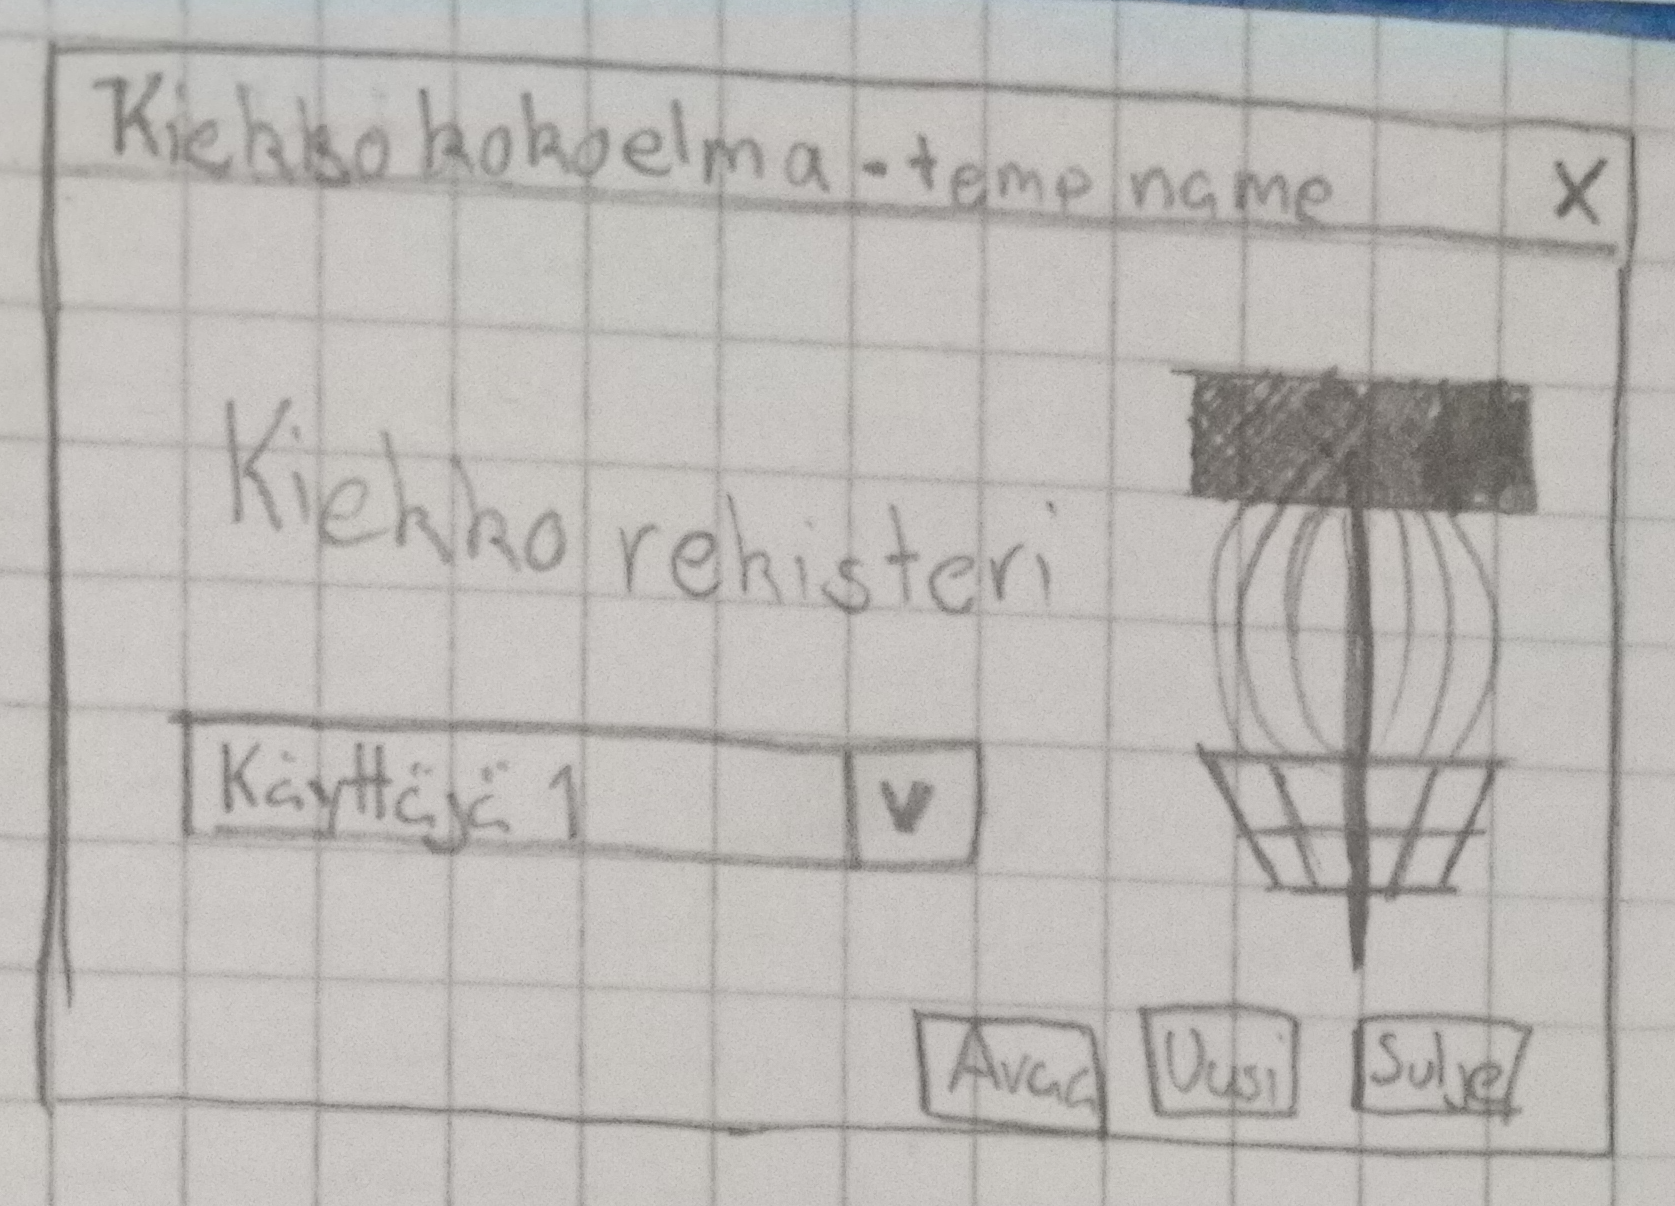 Kiekko kokoelma - temp name X
Kiekko rekisteri
Käyttäjä 1 V
Avaa Uusi Sulje